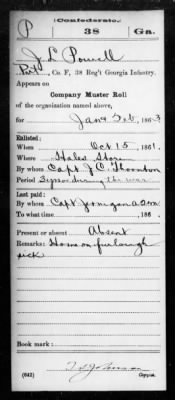 P
(Confederate.)
38
Ga.
J. L. Powell
Pvt, Co. F, 38 Reg't Georgia Infantry.
Appears on
Company Muster Roll
of the organization named above,
for Jan & Feb, 1863
Enlisted:
When Oct 15, 1861.
Where Hales Store
By whom Capt J. C. Thornton
Period 3 yrs or during the war
Last paid:
By whom Capt
To what time , 186 .
Present or absent Absent
Remarks: Home on furlough
sick
Book mark:
(642)
Johnson
Copyist.